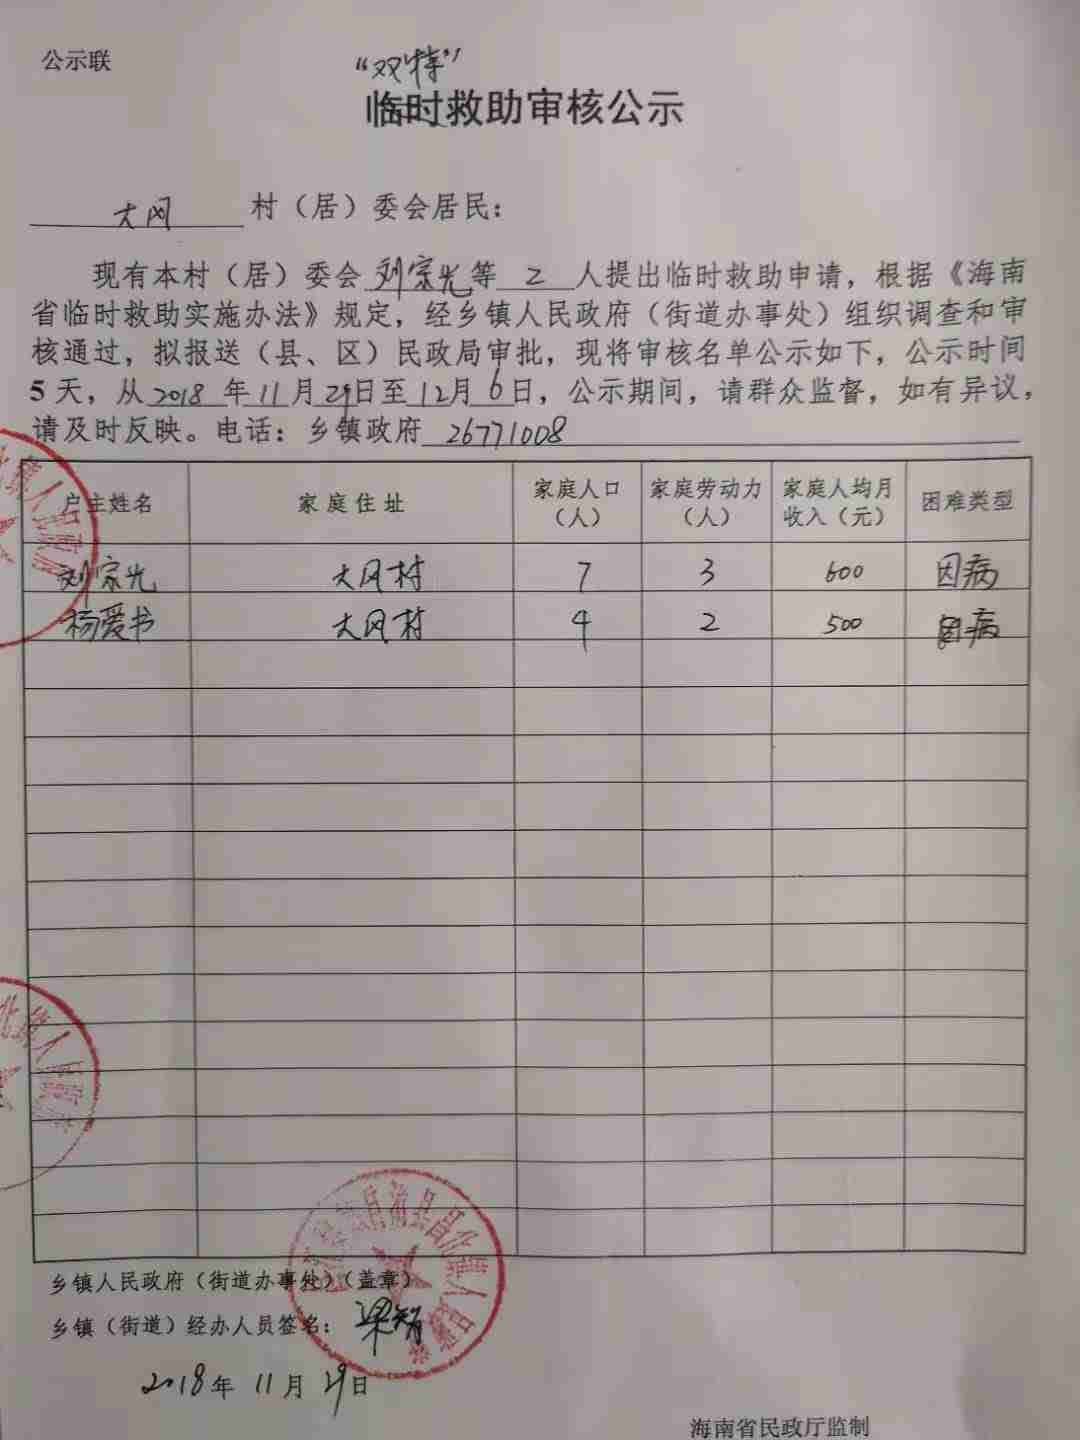 公示联
“双特”
临时救助审核公示
大风 村（居）委会居民：
现有本村（居）委会 刘宗光等 2 人提出临时救助申请，根据《海南
省临时救助实施办法》规定，经乡镇人民政府（街道办事处）组织调查和审
核通过，拟报送（县、区）民政局审批，现将审核名单公示如下，公示时间
5 天，从 2018 年 11 月 29日至 12月 6日，公示期间，请群众监督，如有异议，
请及时反映。电话：乡镇政府 26771008
户主姓名 家庭住址 家庭人口（人） 家庭劳动力（人） 家庭人均月收入（元） 困难类型
刘宗光 大风村 7 3 600 因病
杨爱书 大风村 4 2 500 因病
乡镇人民政府（街道办事处）（盖章）
乡镇（街道）经办人员签名： 梁智
2018年 11月 29日
海南省民政厅监制